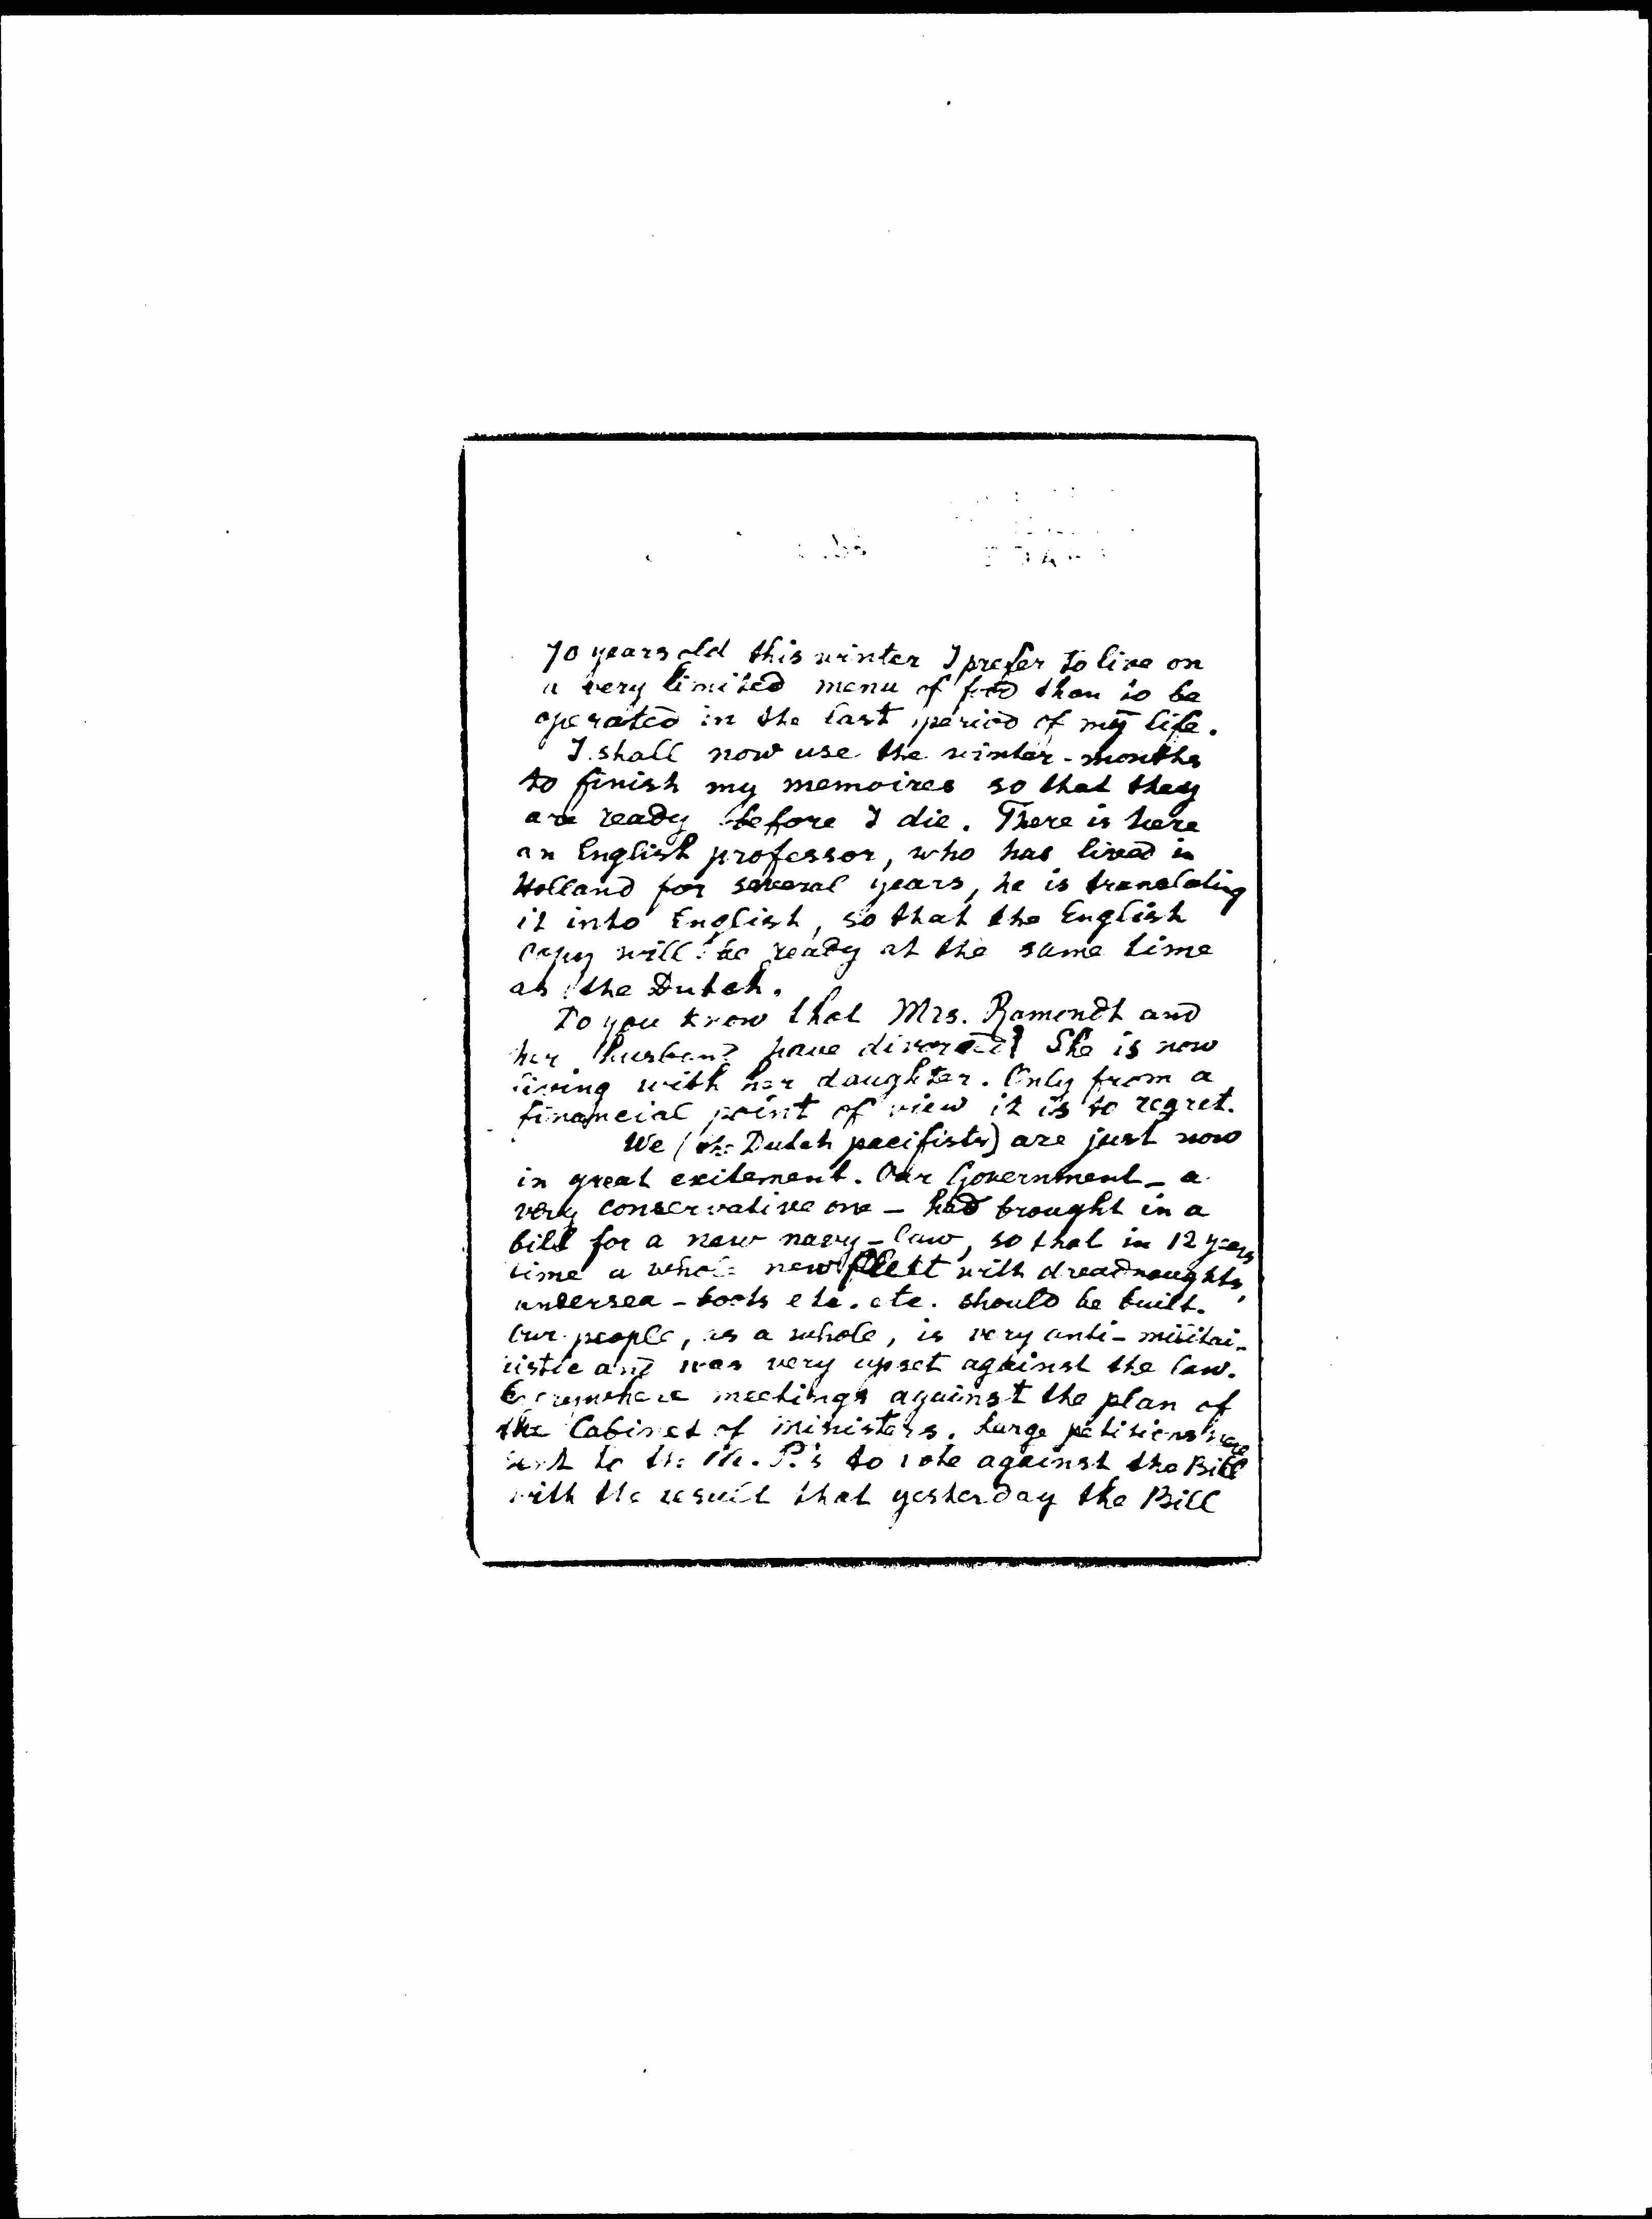 70 years old this winter I prefer to live on
a very limited menu of food than to be
operated in the last period of my life.
I shall now use the winter-months
to finish my memoires so that they
are ready before I die. There is here
an English professor, who has lived in
Holland for several years, he is translating
it into English, so that the English
copy will be ready at the same time
as the Dutch.
Do you know that Mrs. Ramondt and
her husband have divorced? She is now
living with her daughter. Only from a
financial point of view it is to regret.
We (the Dutch pacifists) are just now
in great exitement. Our Government - a
very conservative one - had brought in a
bill for a new navy-law, so that in 12 years
time a whole new fleet with dreadnaughts,
undersea-boots etc. etc. should be built.
Our people, as a whole, is very anti-militai-
ristic and was very upset against the law.
Everywhere meetings against the plan of
the Cabinet of Ministers. Large petitions were
sent to the M.P.'s to vote against the Bill
with the result that yesterday the Bill